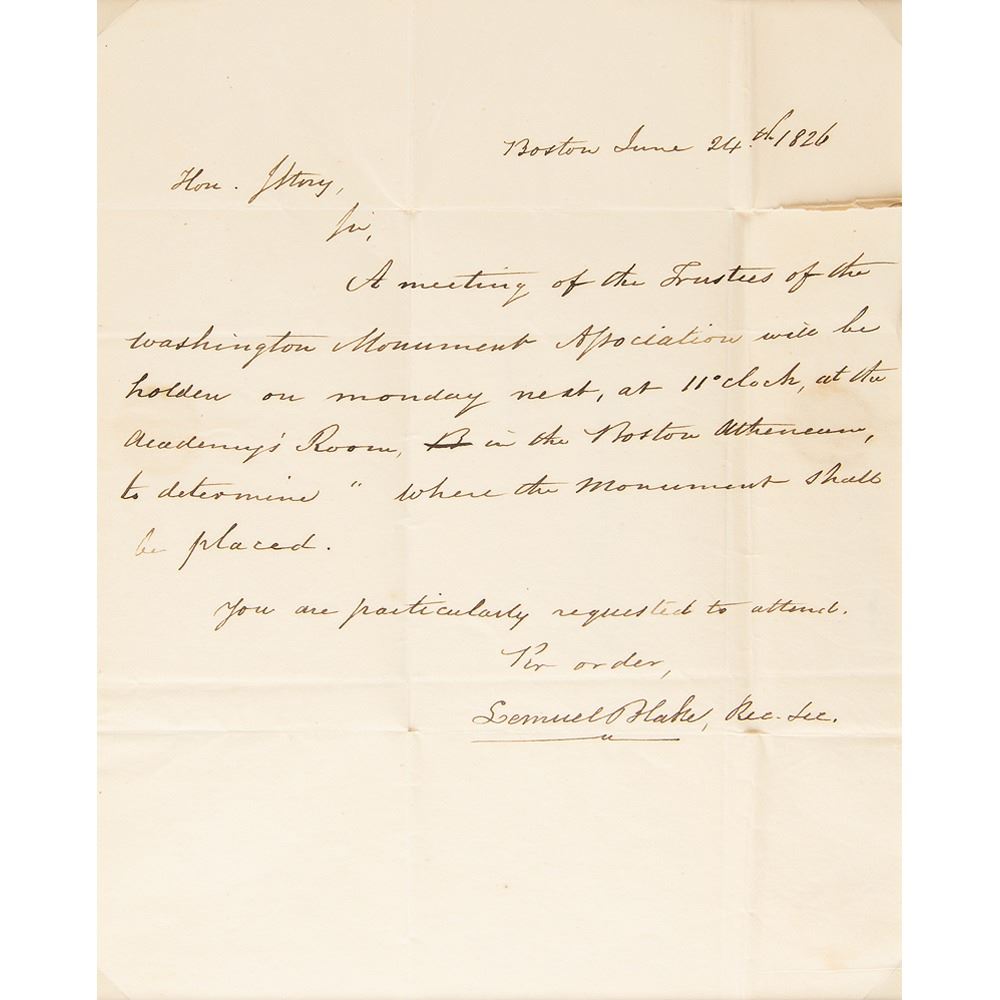 Boston June 24.th 1826
Hon. J Story,
Sir,
A meeting of the Trustees of the
Washington Monument Association will be
holden on monday next, at 11 o'clock, at the
Academy's Room, B in the Boston Atheneum,
to determine " where the Monument shall
be placed.
You are particularly requested to attend.
Per order,
Lemuel Blake, Rec. Sec.